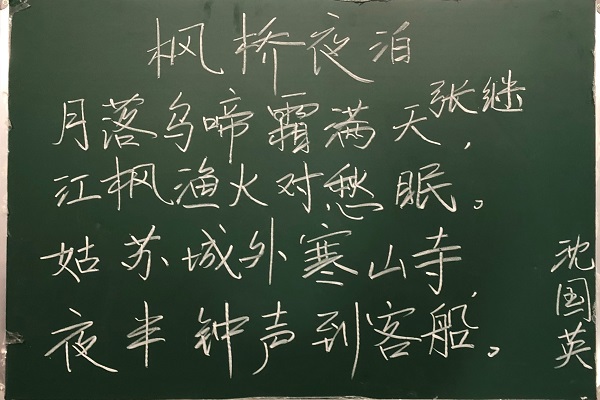 枫桥夜泊
张继
月落乌啼霜满天,
江枫渔火对愁眠。
姑苏城外寒山寺
夜半钟声到客船。
沈国英